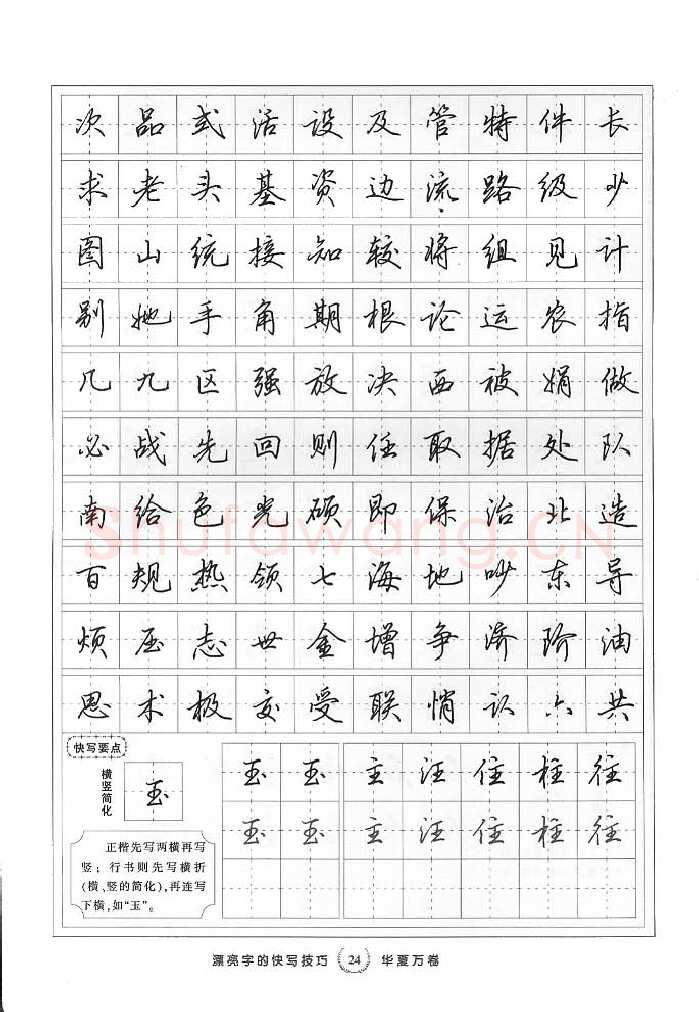 次品或活设及管特件长
求老头基资边流路级少
图山统接知较将组见计
别她手角期根论运农指
几九区强放决西被娟做
必战先回则任取据处队
南给色光硕即保治北造
Shufawang.CN
百规热领七海地吵东导
烦压志世金增争济阶油
思术极交受联悄认六共
快写要点
横竖简化
玉
玉玉主汪住柱往
玉玉主汪住柱往
正楷先写两横再写
竖；行书则先写横折
(横、竖的简化),再连写
下横,如“玉”。
漂亮字的快写技巧 24 华夏万卷